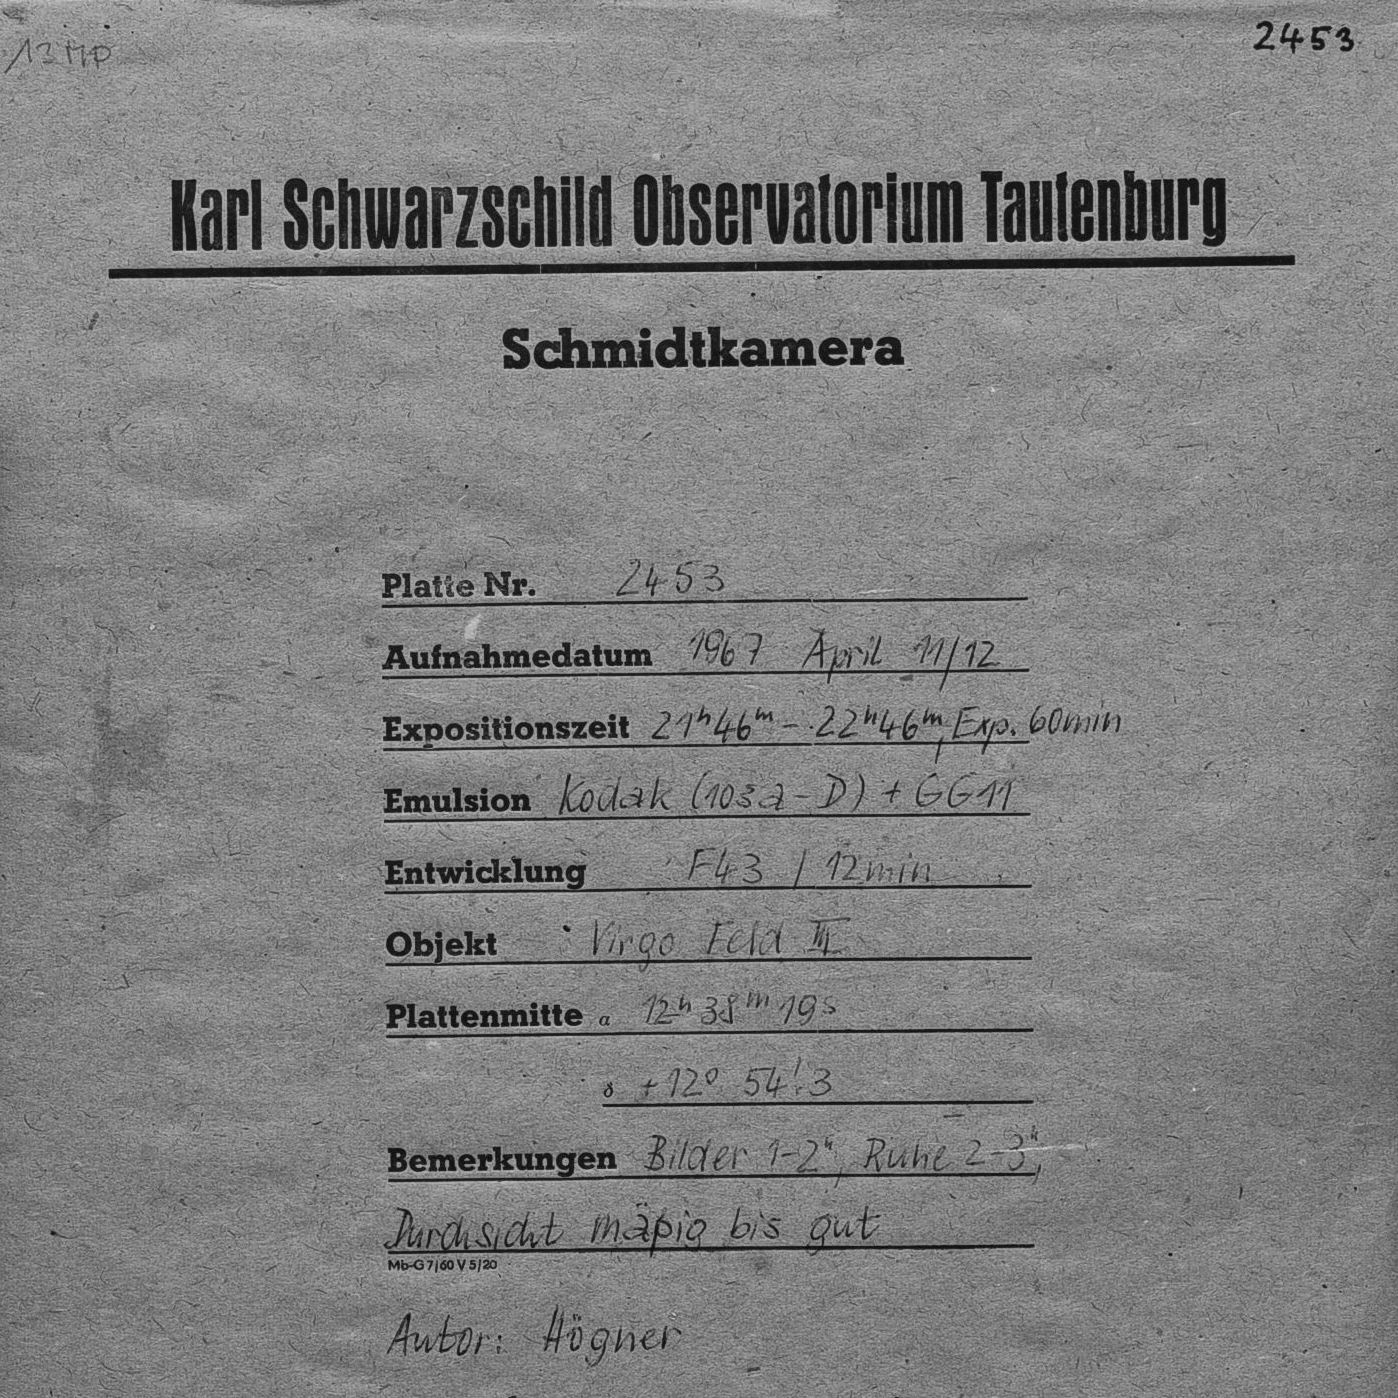 13 MP
2453
Karl Schwarzschild Observatorium Tautenburg
Schmidtkamera
Platte Nr. 2453
Aufnahmedatum 1967 April 11/12
Expositionszeit 21ʰ46ᵐ – 22ʰ46ᵐ, Exp. 60min
Emulsion Kodak (103a-D) + GG11
Entwicklung F43 / 12min
Objekt Virgo Feld III
Plattenmitte α 12ʰ 38ᵐ 19ˢ
δ +12° 54!3
Bemerkungen Bilder 1-2", Ruhe 2-3",
Durchsicht mäßig bis gut
Mb-G 7/60 V 5/20
Autor: Högner